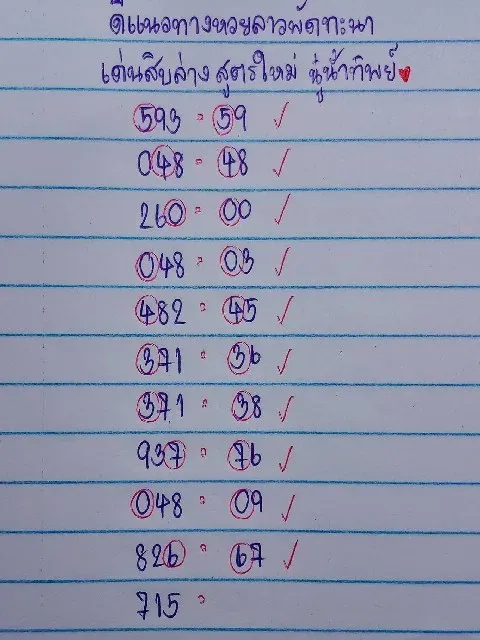 ดีแนวทางหวยลาวพัฒทะนา
เด่นสิบล่าง สูตรใหม่ นู๋น้ำทิพย์
593 = 59 ✓
048 = 48 ✓
260 = 00 ✓
048 = 03 ✓
482 = 45 ✓
371 = 36 ✓
371 = 38 ✓
937 = 76 ✓
048 = 09 ✓
826 = 67 ✓
715 =